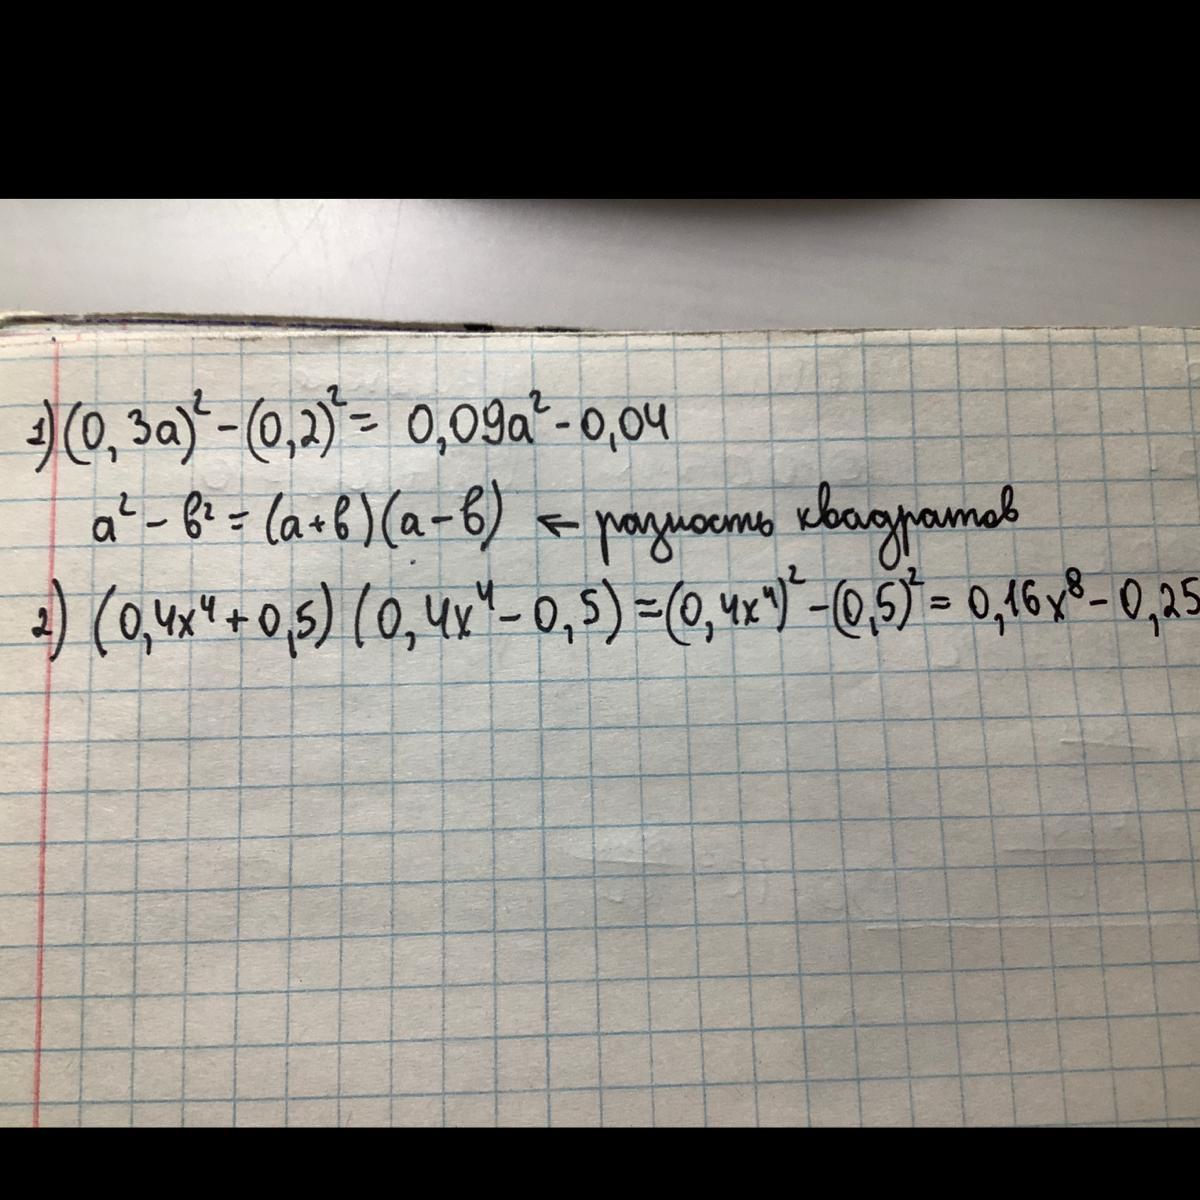 1) (0,3a)² - (0,2)² = 0,09a² - 0,04
a² - в² = (a+в)(a-в) ← разность квадратов
2) (0,4x⁴+0,5)(0,4x⁴-0,5)=(0,4x⁴)²-(0,5)²= 0,16x⁸-0,25